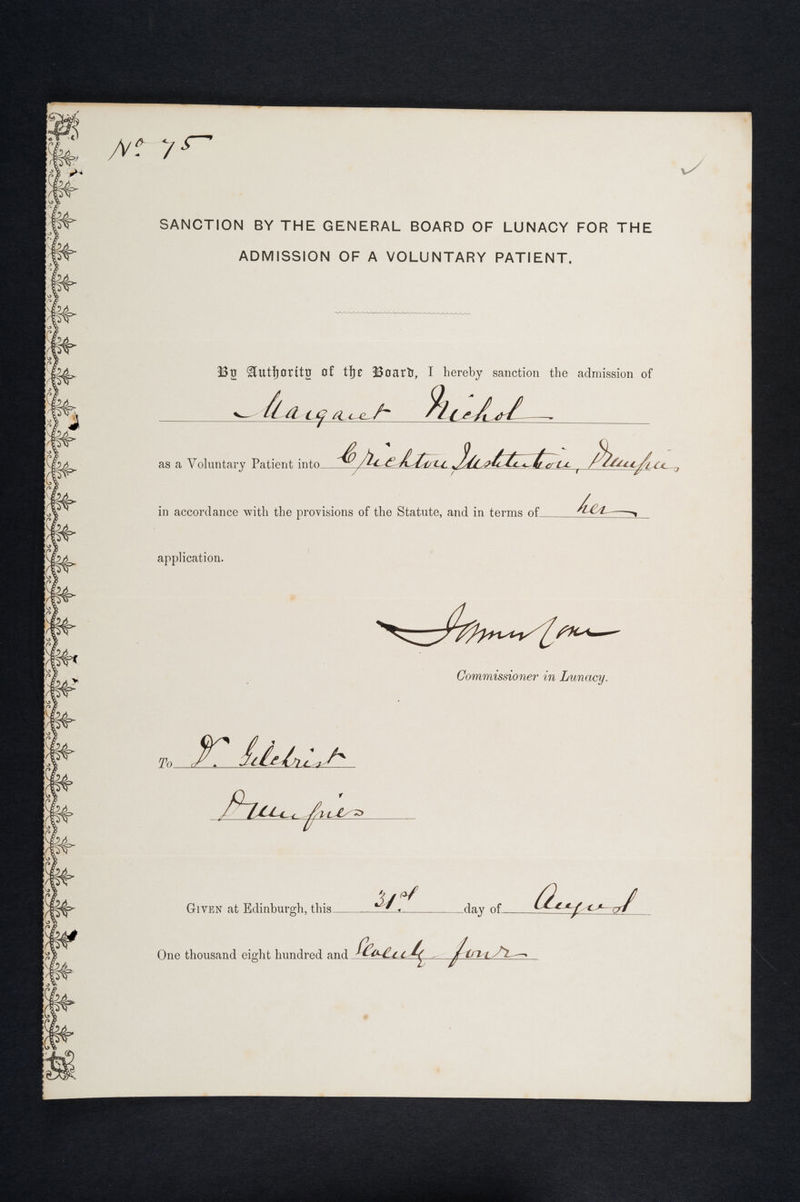 No. 75
SANCTION BY THE GENERAL BOARD OF LUNACY FOR THE
ADMISSION OF A VOLUNTARY PATIENT.
By Authority of the Board, I hereby sanction the admission of
Margaret Nichol
as a Voluntary Patient into Crichton Institution, Dumfries,
in accordance with the provisions of the Statute, and in terms of her
application.
James Coxe
Commissioner in Lunacy.
To Dr. Gilchrist
Dumfries
GIVEN at Edinburgh, this 31st day of August
One thousand eight hundred and seventy four